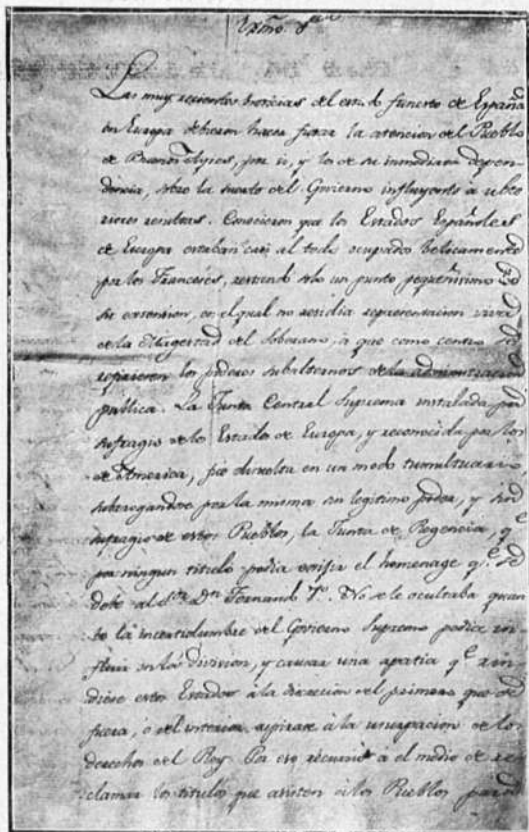 Exmo. Sor.
Las muy recientes noticias del estado funesto de España
en Europa debieron hacer fixar la atencion del Pueblo
de Buenos Ayres, por sí, y los de su inmediata depen-
dencia, sobre la suerte del Govierno influyente á ulte-
riores resultas. Conocieron que los Estados Españoles
de Europa estaban casi al todo ocupados belicamente
por los Franceses, restando solo un punto pequeñisimo de
su extension, en el qual no residia representacion
de la Magestad del Soberano, á que como centro se
refiriesen los poderes subalternos de la administracion
publica. La Junta Central Suprema instalada por
sufragio de los Estados de Europa, y reconocida por los
de America, fue disuelta en un modo tumultuario
subrogandose por la misma sin legitimo poder, y sin
sufragio de estos Pueblos, la Junta de Regencia, qe.
por ningun titulo podia exigir el homenage qe. se
debe al Sor. Dn. Fernando 7o. No se le ocultaba quan-
to la incertidumbre del Govierno Supremo podia in-
fluir en la division, y causar una apatia qe. rin-
diese estos Estados á la discrecion del primero que de
fuera, ó del interior aspirase á la usurpacion de los
derechos del Rey. Por eso recurrió á el medio de re-
clamar los titulos que asisten á los Pueblos para